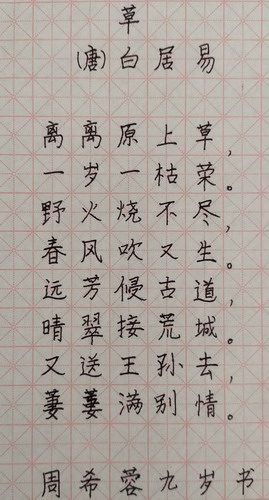 草
(唐)白居易
离离原上草，
一岁一枯荣。
野火烧不尽，
春风吹又生。
远芳侵古道，
晴翠接荒城。
又送王孙去，
萋萋满别情。
周希蓉九岁书